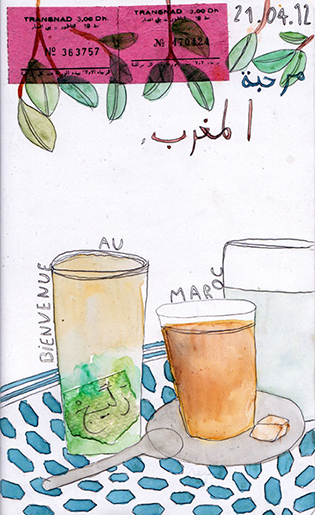 TRANSNAD 3,00 Dh.
TRANSNAD 3,00 Dh.
№ 363757
№ 470424
21.04.12
مرحبة
المغرب
BIENVENUE AU MAROC